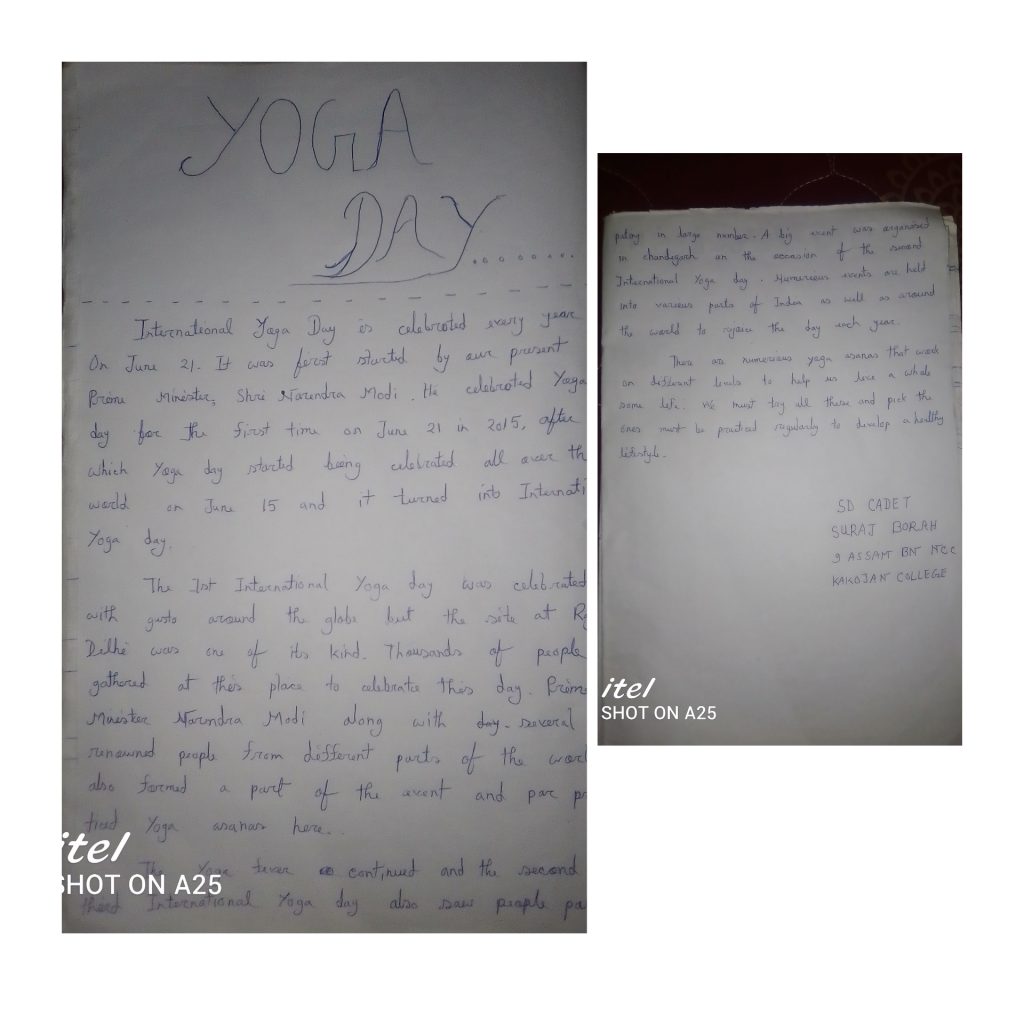 YOGA
DAY.........
International Yoga Day is celebrated every year
On June 21. It was first started by our present
Prime Minister, Shri Narendra Modi. He celebrated Yoga
day for the first time on June 21 in 2015, after
which Yoga day started being celebrated all over th
world on June 15 and it turned into Internati
Yoga day.
The 1st International Yoga day was celebrated
with gusto around the globe but the site at R
Delhi was one of its kind. Thousands of people
gathered at this place to celebrate this day. Prime
Minister Narendra Modi along with day. several
renowned people from different parts of the worl
also formed a part of the event and par pr
ticed Yoga asanas here..
The Yoga fever continued and the second
third International Yoga day also saw people pa
itel
SHOT ON A25
pating in large number. A big event was organised
in chandigarh on the occasion of the second
International Yoga day. Numerious events are held
into various parts of India as well as around
the world to rejoice the day each year.
There are numerious yoga asanas that work
on different levels to help us live a whole
some life. We must try all these and pick the
ones must be practiced regularly to develop a healthy
lifestyle.
SD CADET
SURAJ BORAH
9 ASSAM BN NCC
KAKOJAN COLLEGE
itel
SHOT ON A25